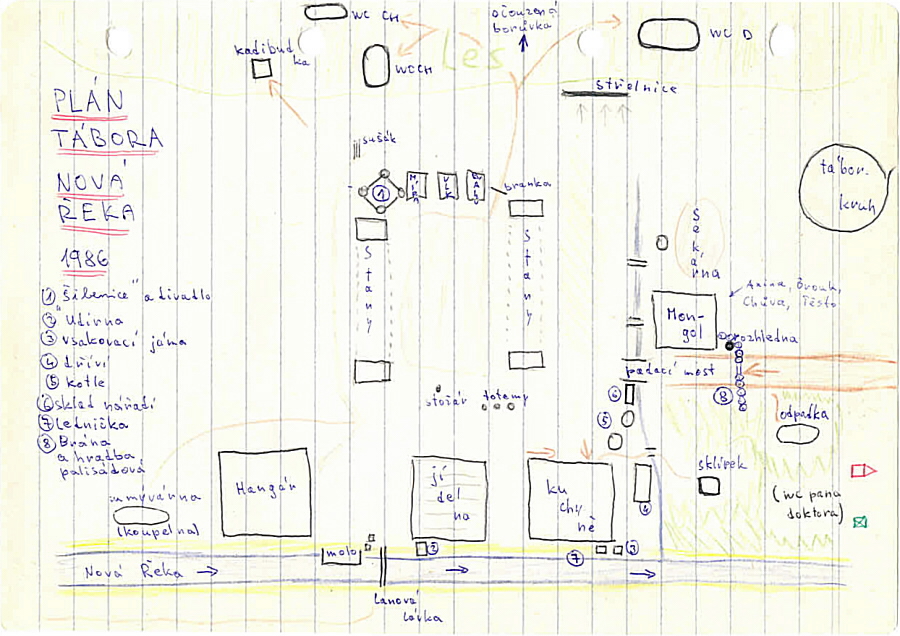 PLÁN
TÁBORA
NOVÁ
ŘEKA
1986
① "Šibenice" a divadlo
② Udírna
③ vsakovací jáma
④ dříví
⑤ kotle
⑥ sklad nářadí
⑦ Lednička
⑧ Brána
a hradba
palisádová
WC CH
kadibud
ka
WC CH
očouzená
borůvka
Les
WC D
střelnice
sušák
①
VLK
branka
tábor.
kruh
Stany
Stany
Sekárna
Mon-
gol
rozhledna
padací most
⑧
stožár
totemy
⑥
⑤
④
odpadka
sklípek
(WC pana
doktora)
umývárna
(koupelna)
Hangár
jí
del
na
ku
chy
ně
molo
②
⑦
③
Nová Řeka
Lanová
lávka